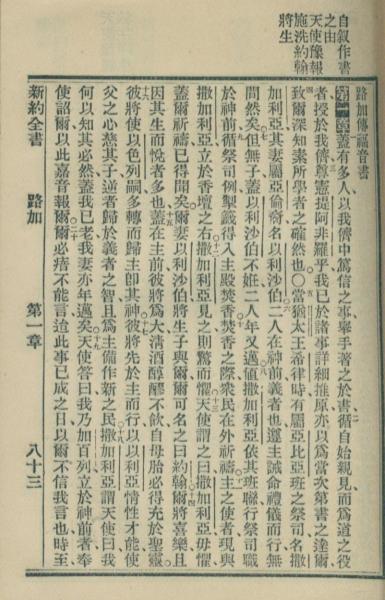 自叙作書
之由
天使豫報
施洗約翰
將生
路加傳福音書
第一章蓋有多人以我儕中篤信之事舉手著之於書循自始親見而爲道之役
者授於我儕尊憲提阿非羅乎我已於諸事詳細推原亦以爲當次第書之達爾
致爾深知素所學者之確然也〇當猶太王希律時有屬亞比亞班之祭司名撒
加利亞其妻屬亞倫裔名以利沙伯二人在神前義者也遵主誡命禮儀而行無
間然矣但無子蓋以利沙伯不姙二人年又邁値撒加利亞依其班聯行祭司職
於神前循祭司例掣籤得入主殿焚香焚香之際衆民在外祈禱主之使者現與
撒加利亞立於香壇之右撒加利亞見之則驚而懼天使謂之曰撒加利亞毋懼
蓋爾祈禱已得聞矣爾妻以利沙伯將生子與爾爾可名之曰約翰爾將喜樂且
因其生而悅者多也蓋在主前彼將爲大淸酒醇醪不飮自母胎必得充於聖靈
彼將使以色列嗣多轉而歸主卽其神彼將先於主而行以以利亞情性才能使
父之心慈其子逆者歸於義者之智且爲主備作新之民撒加利亞謂天使曰我
何以知其必然蓋我已老我妻亦年邁矣天使答曰我乃加百列立於神前者奉
使詔爾以此嘉音報爾爾必瘖不能言迨此事已成之日以爾不信我言也時至
新約全書 路加 第一章 八十三